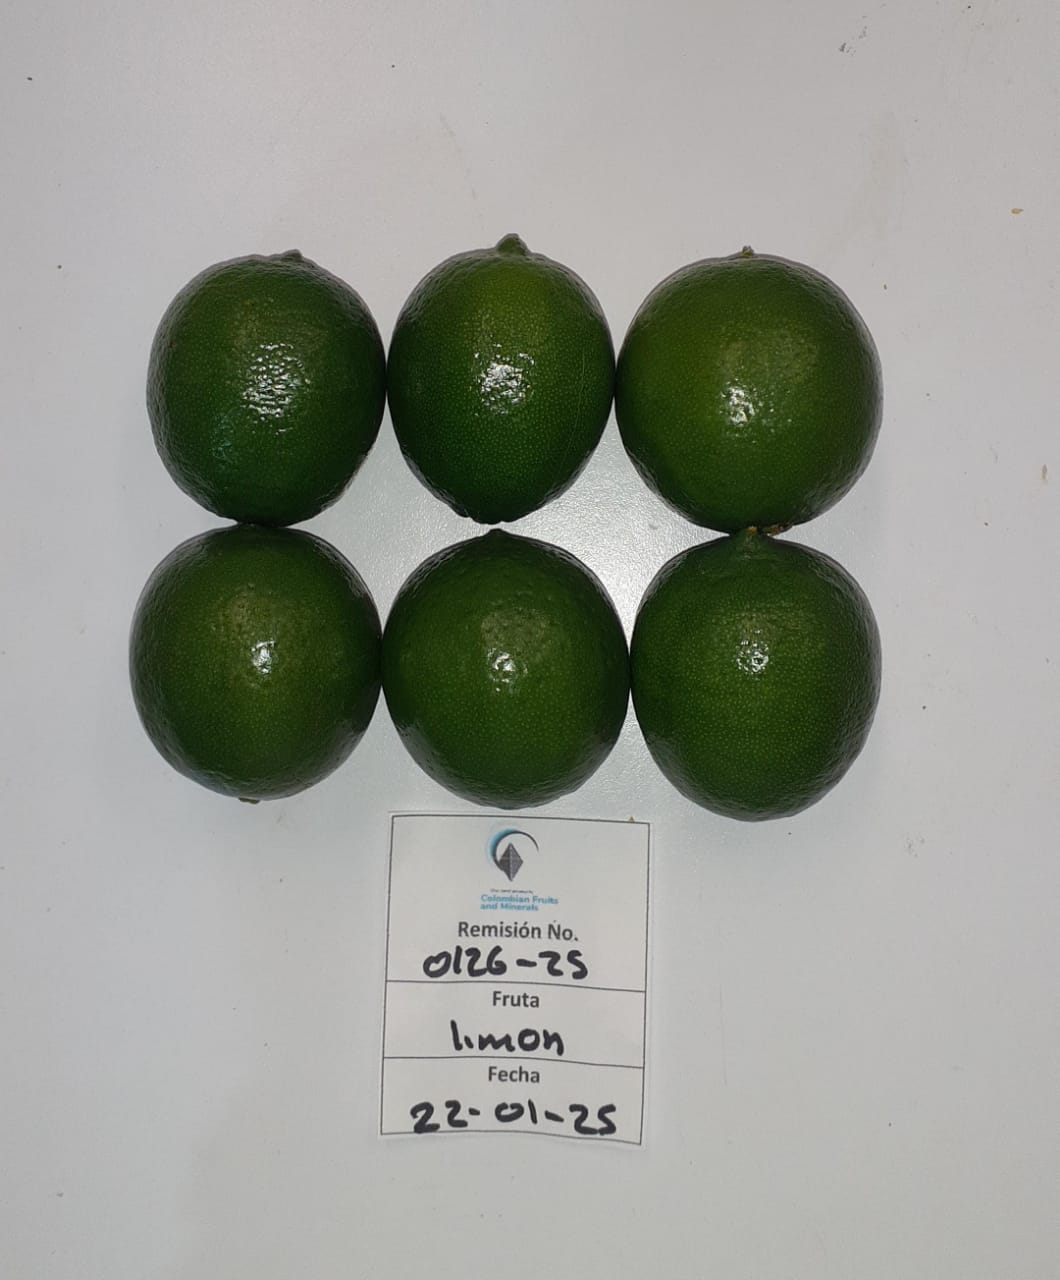 Our land products
Colombian Fruits
and Minerals
Remisión No.
0126-25
Fruta
limon
Fecha
22-01-25